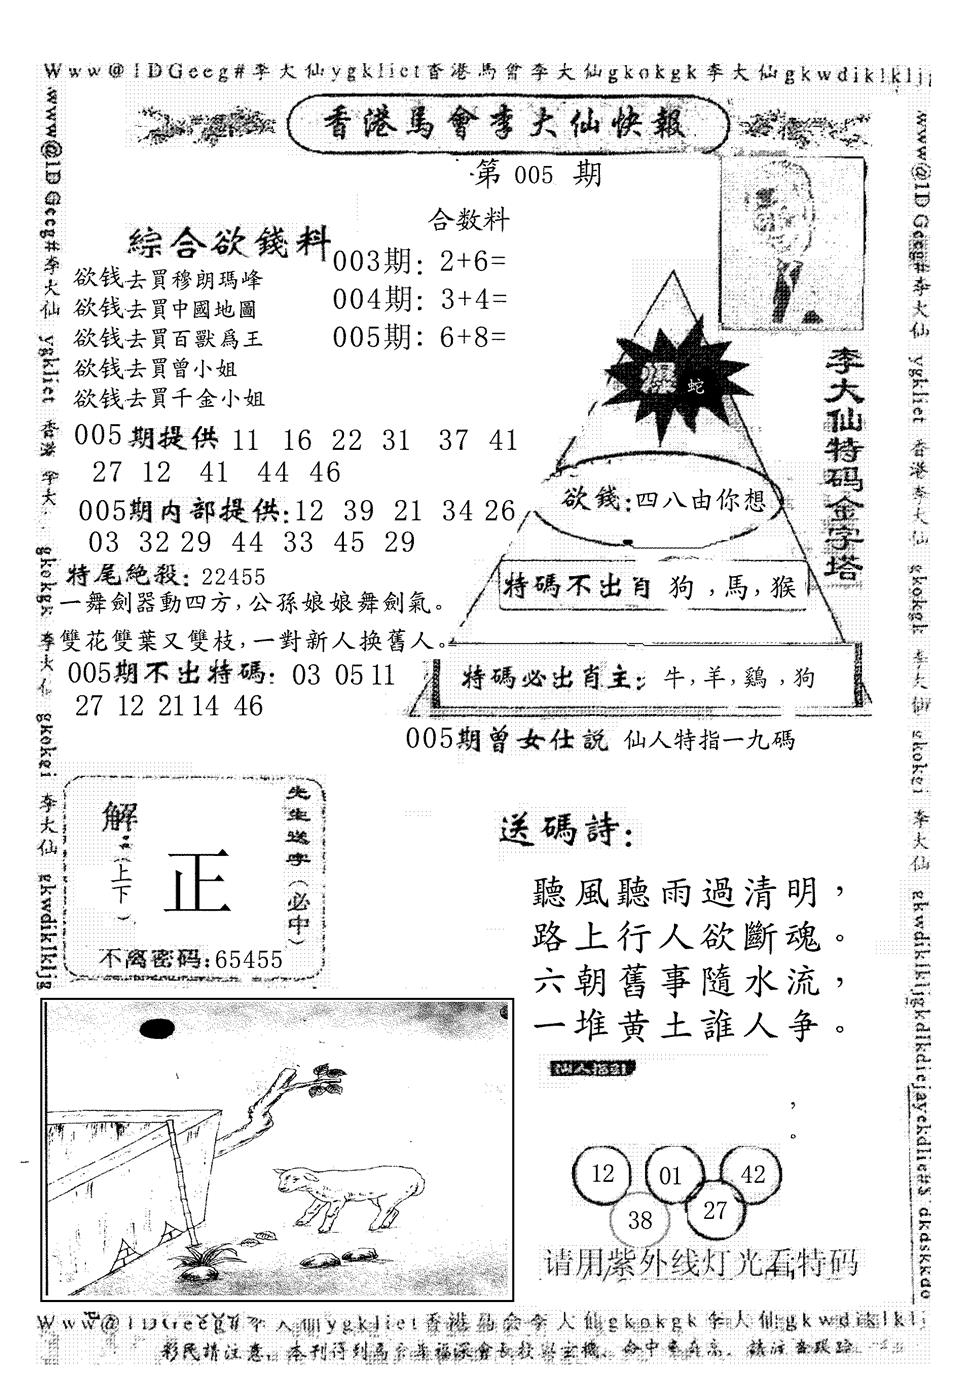 Www@1DGeeg#李大仙ygkliet香港馬會李大仙gkokgk李大仙gkwdiklklj
香港馬會李大仙快報
第 005 期
合数料
綜合欲錢料
003期: 2+6=
004期: 3+4=
005期: 6+8=
欲钱去買穆朗瑪峰
欲钱去買中國地圖
欲钱去買百獸爲王
欲钱去買曾小姐
欲钱去買千金小姐
005期提供 11 16 22 31 37 41
27 12 41 44 46
005期内部提供:12 39 21 34 26
03 32 29 44 33 45 29
特尾絶殺: 22455
一舞劍器動四方,公孫娘娘舞劍氣。
雙花雙葉又雙枝,一對新人换舊人。
005期不出特碼: 03 05 11
27 12 21 14 46
爆 蛇
欲錢:四八由你想
特碼不出肖 狗,馬,猴
特碼必出肖主: 牛,羊,鷄,狗
李大仙特码金字塔
005期曾女仕説 仙人特指一九碼
先生送字(必中)
解:(上下)
正
不离密码:65455
送碼詩:
聽風聽雨過清明,
路上行人欲斷魂。
六朝舊事隨水流,
一堆黄土誰人争。
仙人指引
,
。
12 01 42
38 27
请用紫外线灯光看特码
www@1DGeeg#李大仙 ygkliet 香港 李大 gkokgk 李大仙 gkokei 李大仙 gkwdiklkljg
www@1DGeeg#李大仙 ygkliet 香港馬會李大仙 gkokgk 李大仙 gkokei 李大仙 gkwdiklkljgkdlkdiejayekdlie#$dkdskkdo
Www@1DGeeg#李大仙ygkliet香港馬會李大仙gkokgk李大仙gkwdiklklj
彩民請注意,本刊得到